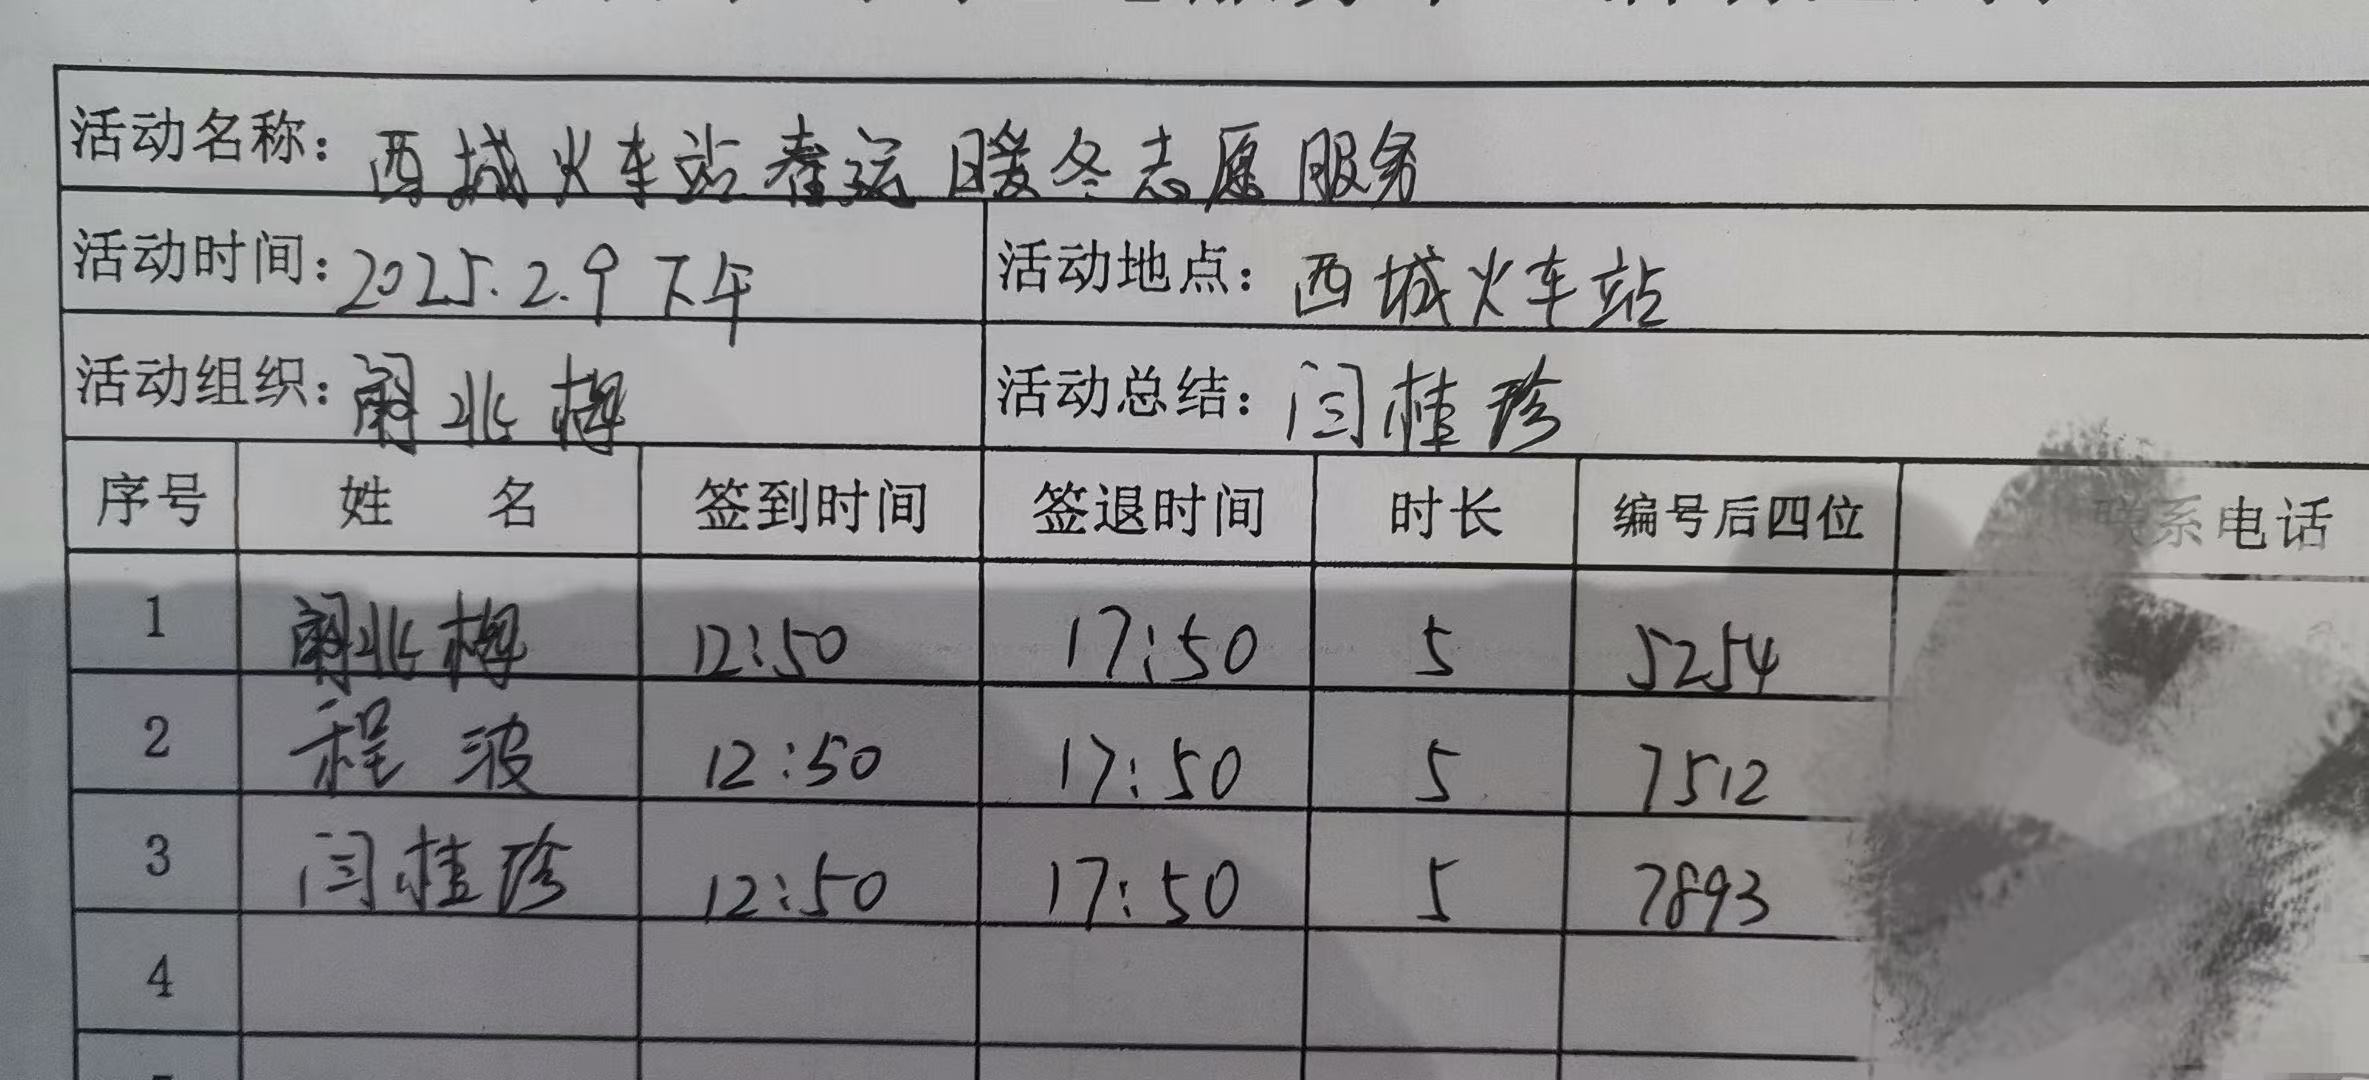 活动名称：西城火车站春运暖冬志愿服务
活动时间：2025.2.9下午 活动地点：西城火车站
活动组织：蔺北梅 活动总结：闫桂珍
序号 姓名 签到时间 签退时间 时长 编号后四位 联系电话
1 北梅 12:50 17:50 5 5254
2 程波 12:50 17:50 5 7512
3 闫桂珍 12:50 17:50 5 7893
4